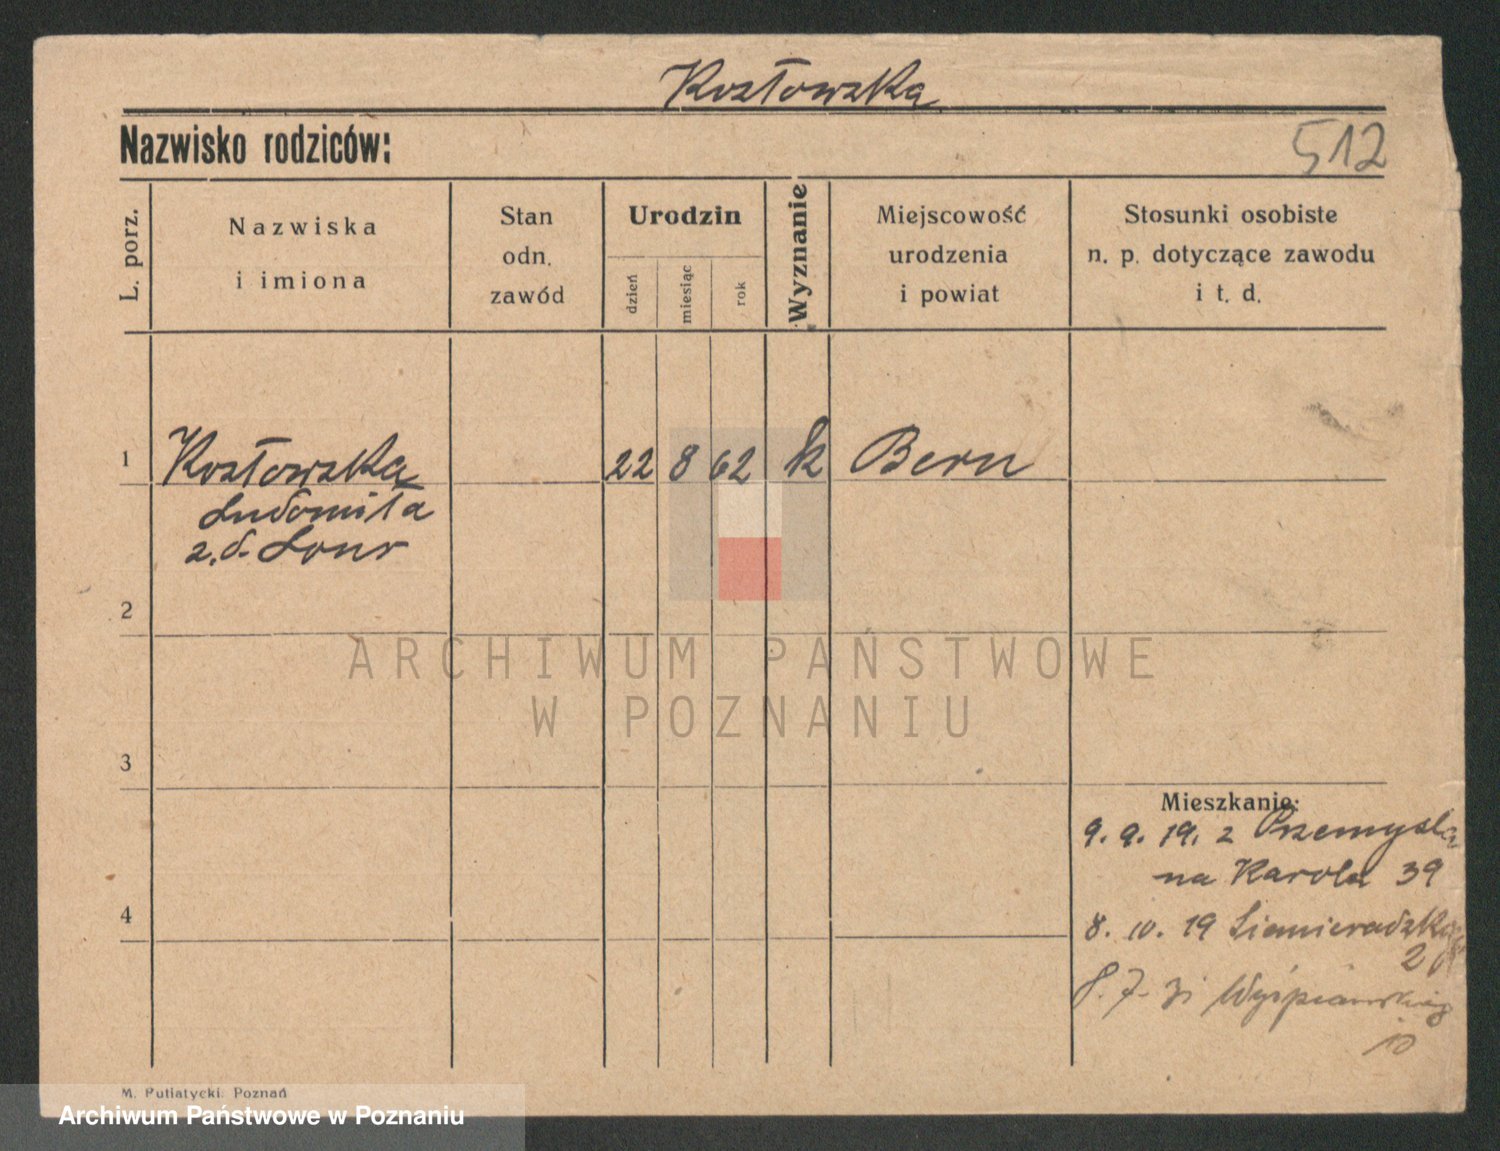 Kozłowska
Nazwisko rodziców:
512
L. porz.
Nazwiska
i imiona
Stan
odn.
zawód
Urodzin
dzień
miesiąc
rok
Wyznanie
Miejscowość
urodzenia
i powiat
Stosunki osobiste
n. p. dotyczące zawodu
i t. d.
1
Kozłowska
Ludomiła
z. d.
22 8 62 k Bern
2
ARCHIWUM PAŃSTWOWE
W POZNANIU
3
Mieszkanie:
9. 9. 19. z Przemyśla
na Karola 39
4
8. 10. 19 Siemieradzkiego
2
8. 7. 31 Wyspiańskiego
10
M. Putiatycki. Poznań
Archiwum Państwowe w Poznaniu